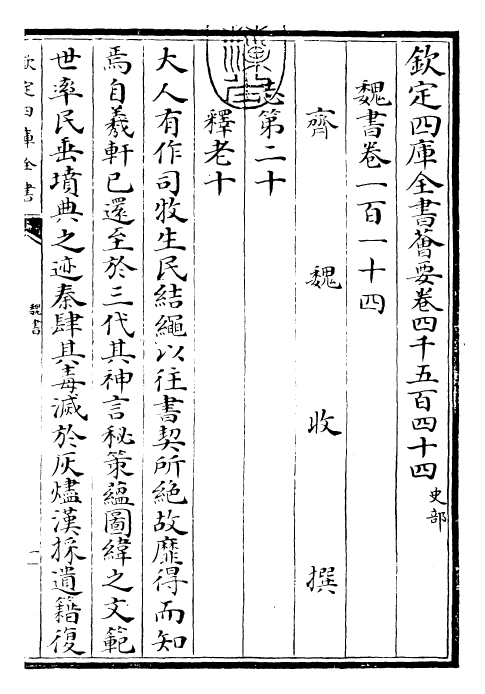 欽定四庫全書薈要卷四千五百四十四 史部
魏書卷一百一十四
齊 魏 收 撰
志第二十
釋老十
大人有作司牧生民結繩以往書契所絶故靡得而知
焉自羲軒已還至於三代其神言秘策藴圖緯之文範
世率民垂墳典之迹秦肆其毒滅於灰燼漢採遺籍復
欽定四庫全書
魏書
一